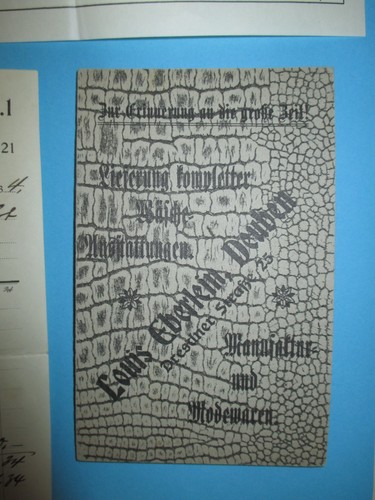 Zur Erinnerung an die große Zeit!
Lieferung kompletter
Wäsche-
Ausstattungen.
Louis Eberlein, Deuben
Dresdner Straße 25
Manufaktur-
und
Modewaren.
.1
21
4,